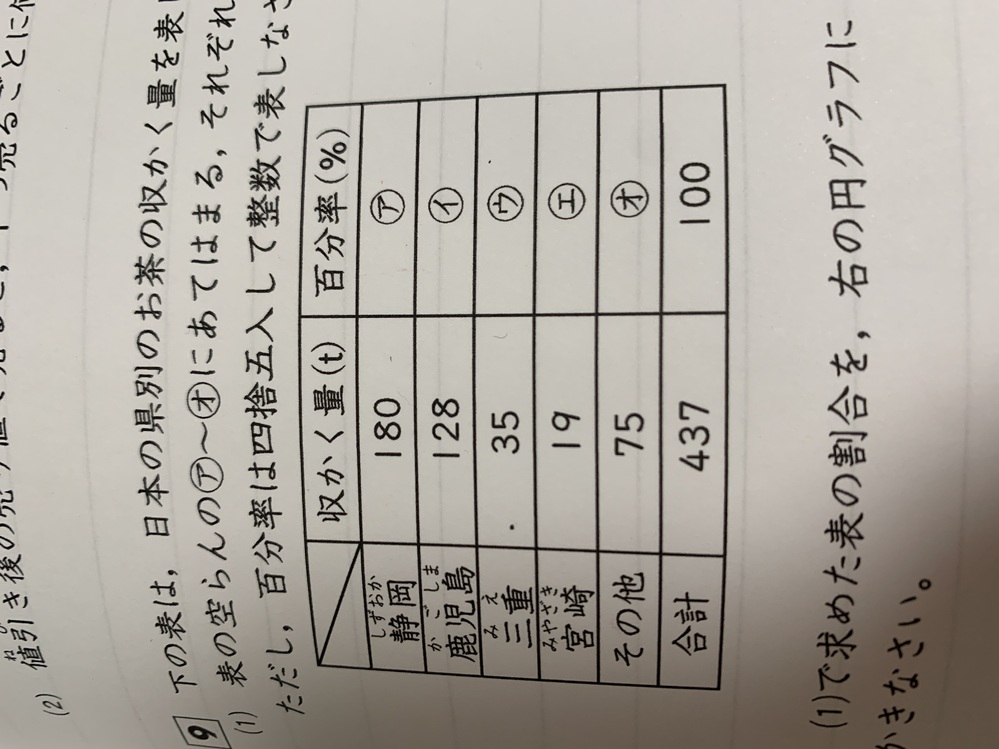 (2) 値引き後の売り値で売ると，
ねび
9 下の表は，日本の県別のお茶の収かく量を表
(1) 表の空らんの㋐～㋔にあてはまる，それぞれ
ただし，百分率は四捨五入して整数で表しなさ
収かく量(t) 百分率(%)
しずおか
静岡 180 ㋐
かごしま
鹿児島 128 ㋑
みえ
三重 35 ㋒
みやざき
宮崎 19 ㋓
その他 75 ㋔
合計 437 100
(1)で求めた表の割合を，右の円グラフに
かきなさい。